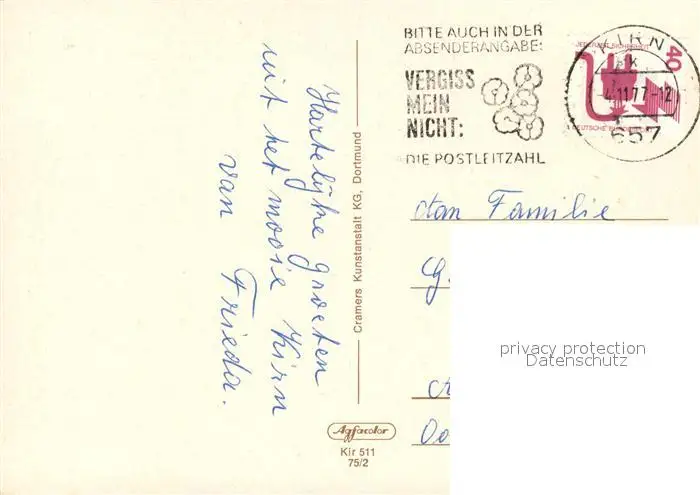 Hartelijke groeten
uit het mooie Kirn
van Frieda.
Cramers Kunstanstalt KG, Dortmund
Agfacolor
Kir 511
75/2
BITTE AUCH IN DER
ABSENDERANGABE:
VERGISS
MEIN
NICHT:
DIE POSTLEITZAHL
KIRN
-4.11.77-12
657
JEDERZEIT SICHERHEIT
40
DEUTSCHE BUNDESPOST
Aan Familie
G.
privacy protection
Datenschutz